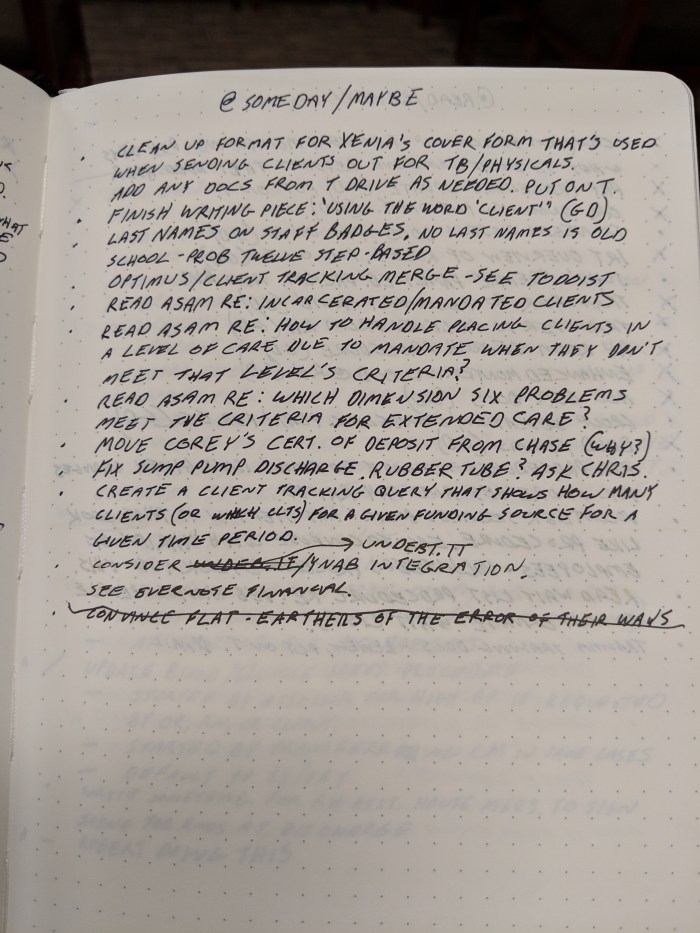 @ SOMEDAY/MAYBE
· CLEAN UP FORMAT FOR XENIA'S COVER FORM THAT'S USED
WHEN SENDING CLIENTS OUT FOR TB/PHYSICALS.
ADD ANY DOCS FROM T DRIVE AS NEEDED. PUT ON T.
· FINISH WRITING PIECE: "USING THE WORD 'CLIENT'" (GD)
· LAST NAMES ON STAFF BADGES. NO LAST NAMES IS OLD
SCHOOL - PROB TWELVE STEP-BASED
· OPTIMUS/CLIENT TRACKING MERGE - SEE TODOIST
· READ ASAM RE: INCARCERATED/MANDATED CLIENTS
· READ ASAM RE: HOW TO HANDLE PLACING CLIENTS IN
A LEVEL OF CARE DUE TO MANDATE WHEN THEY DON'T
MEET THAT LEVEL'S CRITERIA?
· READ ASAM RE: WHICH DIMENSION SIX PROBLEMS
MEET THE CRITERIA FOR EXTENDED CARE?
· MOVE COREY'S CERT. OF DEPOSIT FROM CHASE (WHY?)
· FIX SUMP PUMP DISCHARGE. RUBBER TUBE? ASK CHRIS.
· CREATE A CLIENT TRACKING QUERY THAT SHOWS HOW MANY
CLIENTS (OR WHICH CLTS) FOR A GIVEN FUNDING SOURCE FOR A
GIVEN TIME PERIOD.
UNDEBT.IT
· CONSIDER /YNAB INTEGRATION.
SEE EVERNOTE FINANCIAL.
· CONVINCE FLAT-EARTHERS OF THE ERROR OF THEIR WAYS